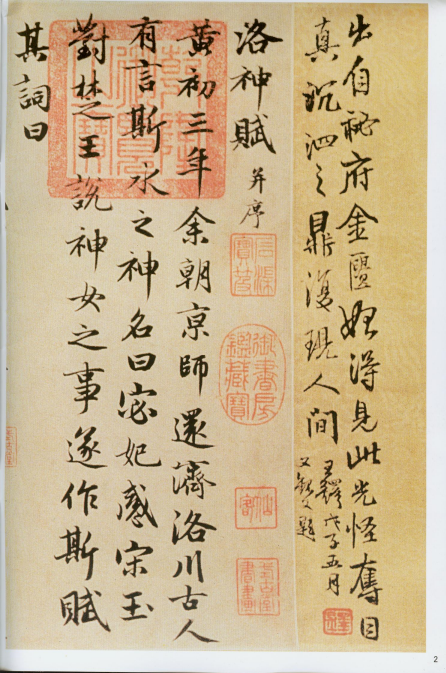 出自秘府金匱始得見此光怪奪目
真沉泗之鼎復現人間
王鐸戊子五月
洛神賦 并序
御書房鑑藏寶
黃初三年余朝京師還濟洛川古人
有言斯水之神名曰宓妃感宋玉
對楚王說神女之事遂作斯賦
其詞曰
2